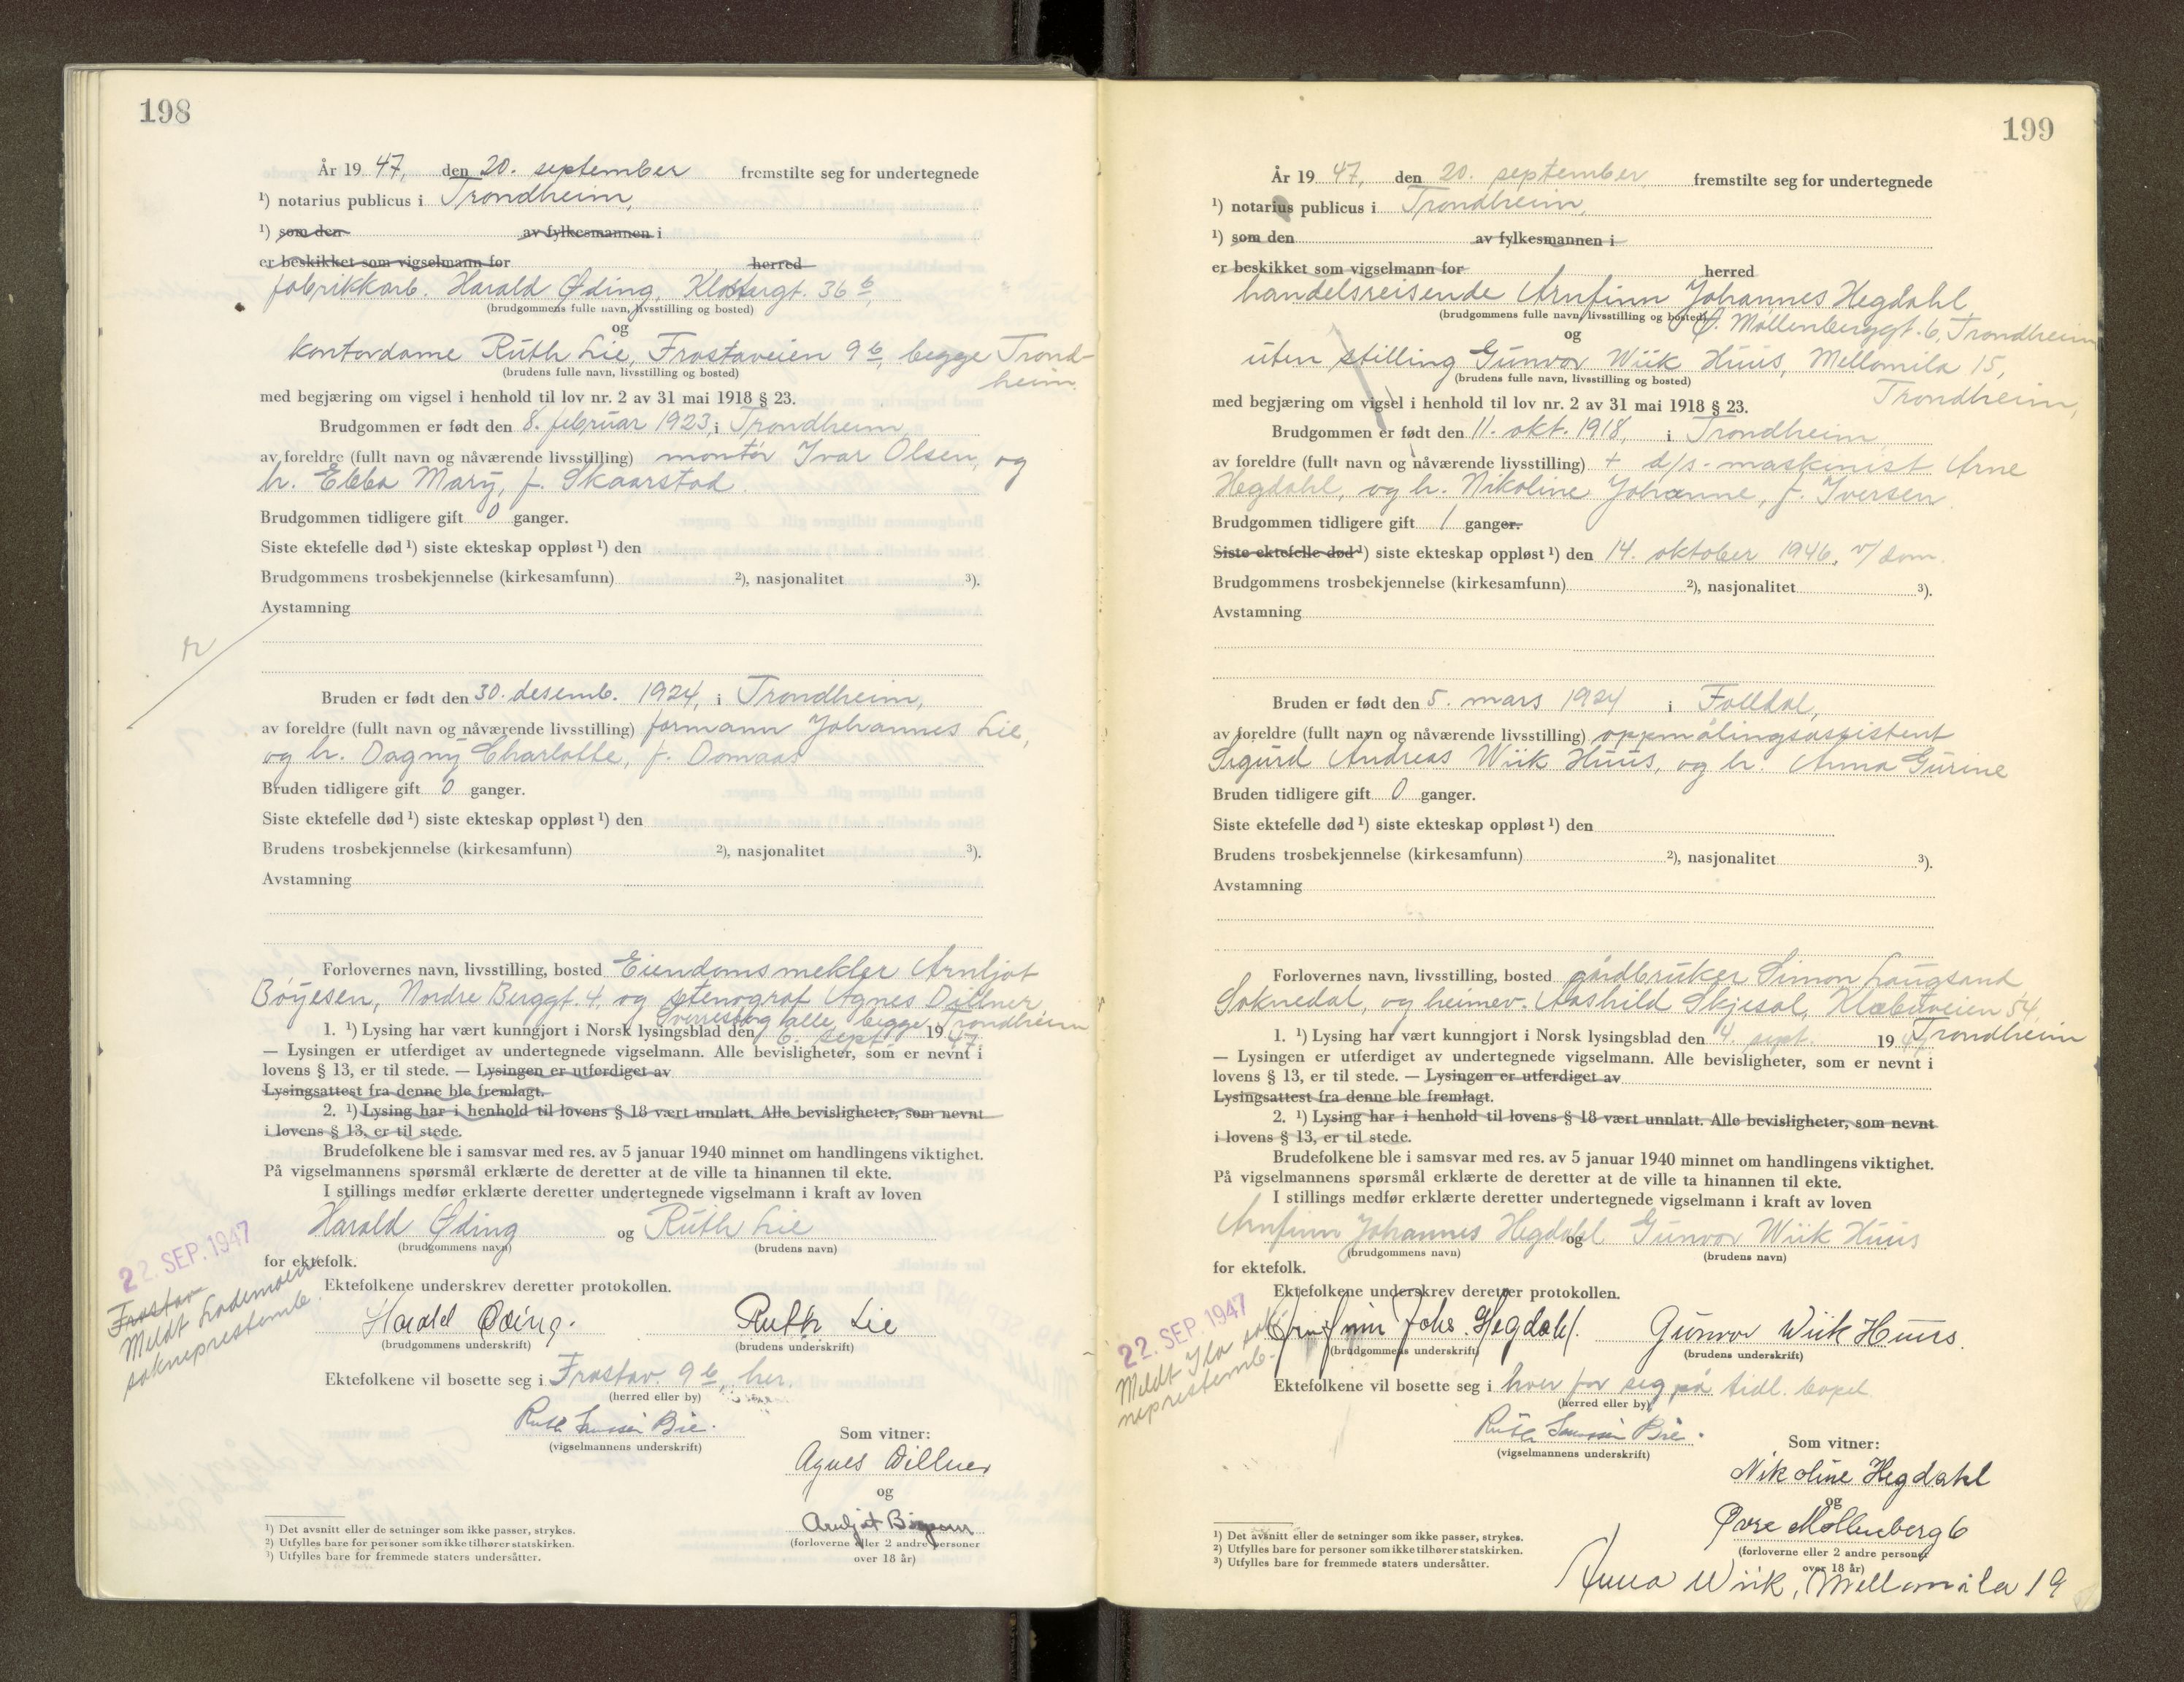 198
År 19 47, den 20. september fremstilte seg for undertegnede
¹) notarius publicus i Trondheim,
¹) som den av fylkesmannen i
er beskikket som vigselmann for herred
fabrikkarb. Harald Øding, Klostergt. 36 b,
(brudgommens fulle navn, livsstilling og bosted)
og
kontordame Ruth Lie, Frostaveien 9 b, begge Trond-
heim.
(brudens fulle navn, livsstilling og bosted)
med begjæring om vigsel i henhold til lov nr. 2 av 31 mai 1918 § 23.
Brudgommen er født den 8. februar 1923, i Trondheim,
av foreldre (fullt navn og nåværende livsstilling) montør Ivar Olsen, og
h. Ebba Mary, f. Skaarstad.
Brudgommen tidligere gift 0 ganger.
Siste ektefelle død ¹) siste ekteskap oppløst ¹) den
Brudgommens trosbekjennelse (kirkesamfunn) ²), nasjonalitet ³).
Avstamning
Bruden er født den 30. desemb. 1924, i Trondheim,
av foreldre (fullt navn og nåværende livsstilling) formann Johannes Lie,
og h. Dagny Charlotte, f. Domaas
Bruden tidligere gift 0 ganger.
Siste ektefelle død ¹) siste ekteskap oppløst ¹) den
Brudens trosbekjennelse (kirkesamfunn) ²), nasjonalitet ³).
Avstamning
Forlovernes navn, livsstilling, bosted Eiendomsmekler Arnljot
Bøyesen, Nordre Berggt. 4, og stenograf Agnes Dillner,
Sverresborg alle, begge Trondheim
1. ¹) Lysing har vært kunngjort i Norsk lysingsblad den 6. sept. 19 47.
— Lysingen er utferdiget av undertegnede vigselmann. Alle bevisligheter, som er nevnt i
lovens § 13, er til stede. — Lysingen er utferdiget av
Lysingsattest fra denne ble fremlagt.
2. ¹) Lysing har i henhold til lovens § 18 vært unnlatt. Alle bevisligheter, som nevnt
i lovens § 13, er til stede.
Brudefolkene ble i samsvar med res. av 5 januar 1940 minnet om handlingens viktighet.
På vigselmannens spørsmål erklærte de deretter at de ville ta hinannen til ekte.
I stillings medfør erklærte deretter undertegnede vigselmann i kraft av loven
Harald Øding og Ruth Lie
(brudgommens navn) (brudens navn)
for ektefolk.
22. SEP. 1947
Frostav
Meldt Lademoen
sokneprestemb.
Ektefolkene underskrev deretter protokollen.
Harald Øding. Ruth Lie
(brudgommens underskrift) (brudens underskrift)
Ektefolkene vil bosette seg i Frostav. 9 b, her.
(herred eller by)
(vigselmannens underskrift)
Som vitner:
Agnes Dillner
og
Arnljot Bøyesen
(forloverne eller 2 andre personer
over 18 år)
¹) Det avsnitt eller de setninger som ikke passer, strykes.
²) Utfylles bare for personer som ikke tilhører statskirken.
³) Utfylles bare for fremmede staters undersåtter.
199
År 19 47, den 20. september fremstilte seg for undertegnede
¹) notarius publicus i Trondheim,
¹) som den av fylkesmannen i
er beskikket som vigselmann for herred
handelsreisende Arnfinn Johannes Hegdahl
(brudgommens fulle navn, livsstilling og bosted) Ø. Møllenberggt. 6, Trondheim
og
uten stilling Gunvor Wiik Huus, Mellomila 15,
(brudens fulle navn, livsstilling og bosted)
Trondheim,
med begjæring om vigsel i henhold til lov nr. 2 av 31 mai 1918 § 23.
Brudgommen er født den 11. okt. 1918, i Trondheim
av foreldre (fullt navn og nåværende livsstilling) + d/s-maskinist Arne
Hegdahl, og h. Nikoline Johanne, f. Iversen
Brudgommen tidligere gift 1 ganger.
Siste ektefelle død ¹) siste ekteskap oppløst ¹) den 14. oktober 1946, v/ dom.
Brudgommens trosbekjennelse (kirkesamfunn) ²), nasjonalitet ³).
Avstamning
Bruden er født den 5. mars 1924 i Folldal,
av foreldre (fullt navn og nåværende livsstilling) oppmålingsassistent
Sigurd Andreas Wiik Huus, og h. Anna Gurine
Bruden tidligere gift 0 ganger.
Siste ektefelle død ¹) siste ekteskap oppløst ¹) den
Brudens trosbekjennelse (kirkesamfunn) ²), nasjonalitet ³).
Avstamning
Forlovernes navn, livsstilling, bosted gårdbruker Simon Laugsand
Soknedal, og heimev. Aashild Skjesol, Klæbuveien 54,
Trondheim
1. ¹) Lysing har vært kunngjort i Norsk lysingsblad den 4. sept. 19 47
— Lysingen er utferdiget av undertegnede vigselmann. Alle bevisligheter, som er nevnt i
lovens § 13, er til stede. — Lysingen er utferdiget av
Lysingsattest fra denne ble fremlagt.
2. ¹) Lysing har i henhold til lovens § 18 vært unnlatt. Alle bevisligheter, som nevnt
i lovens § 13, er til stede.
Brudefolkene ble i samsvar med res. av 5 januar 1940 minnet om handlingens viktighet.
På vigselmannens spørsmål erklærte de deretter at de ville ta hinannen til ekte.
I stillings medfør erklærte deretter undertegnede vigselmann i kraft av loven
Arnfinn Johannes Hegdahl og Gunvor Wiik Huus
(brudgommens navn) (brudens navn)
for ektefolk.
22. SEP. 1947
Meldt Ila sok-
neprestemb.
Ektefolkene underskrev deretter protokollen.
Arnfinn Johs. Hegdahl. Gunvor Wiik Huus.
(brudgommens underskrift) (brudens underskrift)
Ektefolkene vil bosette seg i hver for seg på tidl. bopel
(herred eller by)
(vigselmannens underskrift)
Som vitner:
Nikoline Hegdahl
og
Øvre Møllenberg 6
(forloverne eller 2 andre personer
over 18 år)
Anna Wiik, Mellomila 19
¹) Det avsnitt eller de setninger som ikke passer, strykes.
²) Utfylles bare for personer som ikke tilhører statskirken.
³) Utfylles bare for fremmede staters undersåtter.